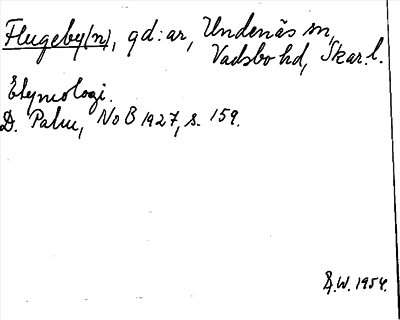 Flugeby(n), gd:ar, Undenäs sn,
Vadsbo hd, Skar. l.
Etymologi.
D. Palm, NoB 1927, s. 159.
D.W. 1954.